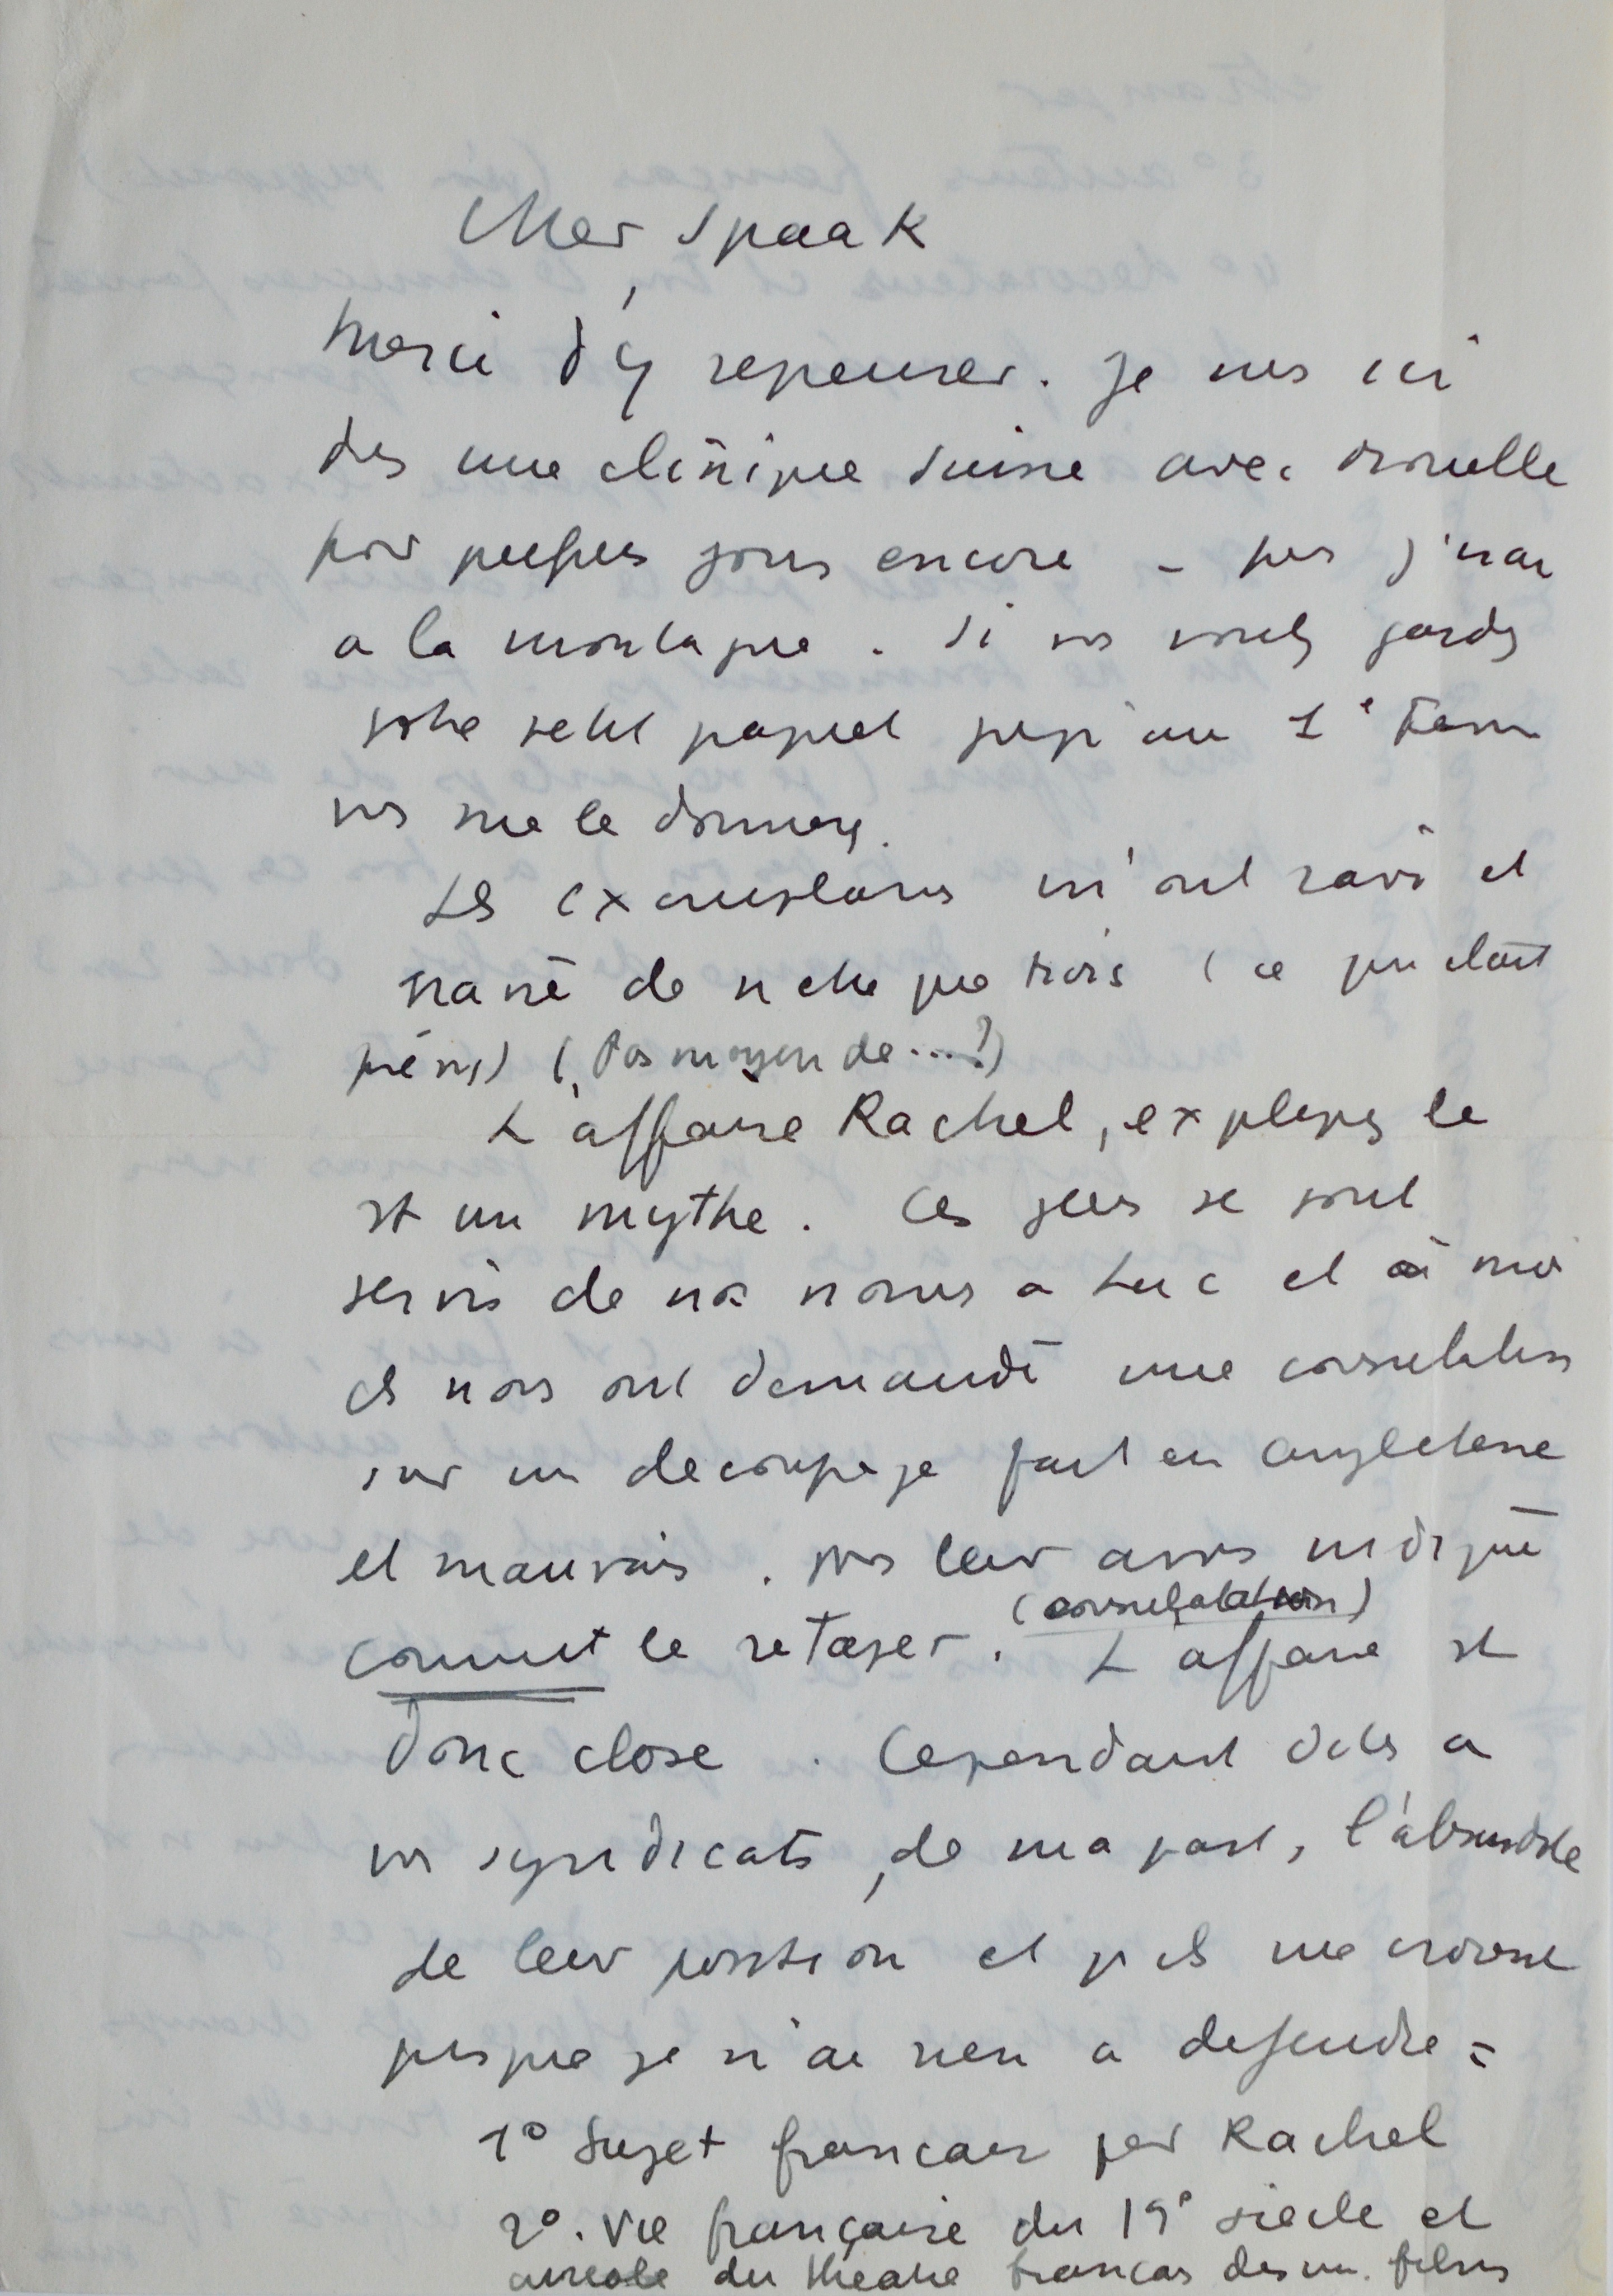 Cher Spaak
Merci d'y repenser. Je suis ici
ds une clinique suisse avec
pour quelques jours encore – puis j'irai
a la montagne. Si vs voulez gardez
votre petit paquet jusqu'au 1er
vs me le donnerez.
Les exemplaires m'ont ravi et
navré de n'etre que trois (ce qui était
prévu) (Pas moyen de...?)
L'affaire Rachel, expliquez le
est un mythe. Ces gens se sont
servis de nos noms a Luc et à moi
ils nous ont demandé une consultation
sur un decoupage fait en angleterre
et mauvais. Ns leur avons indiqué
comment le retaper. (consultation) L'affaire est
donc close. Cependant dites a
vos syndicats, de ma part, l'absurdité
de leur position et qu'ils me croient
puisque je n'ai rien a defendre =
1° Sujet francais par Rachel
2°. Vie française du 19e siecle et
du theatre francais ds un film